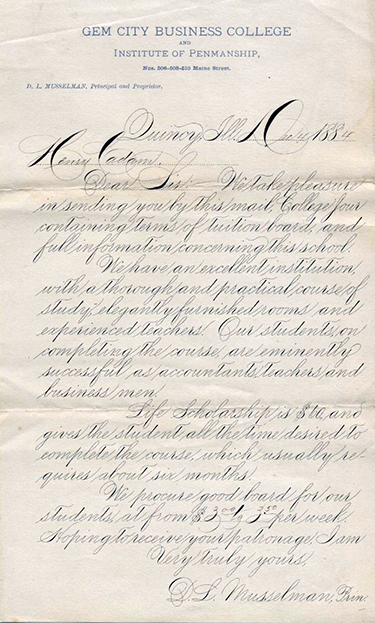 GEM CITY BUSINESS COLLEGE
AND
INSTITUTE OF PENMANSHIP,
Nos. 506-508-510 Maine Street.
D. L. MUSSELMAN, Principal and Proprietor.
Quincy, Ill. 1884
Henry Cadgm.
Dear Sir:— We take pleasure
in sending you by this mail, College Jour
containing terms of tuition, board, and
full information concerning this school.
We have an excellent institution,
with a thorough and practical course of
study, elegantly furnished rooms and
experienced teachers. Our students, on
completing the course, are eminently
successful as accountants, teachers, and
business men.
Life Scholarship is and
gives the student, all the time desired to
complete the course, which usually re-
quires about six months.
We procure good board for our
students, at from $3.00 per week.
Hoping to receive your patronage, I am
Very truly yours,
D. L. Musselman, Prin.